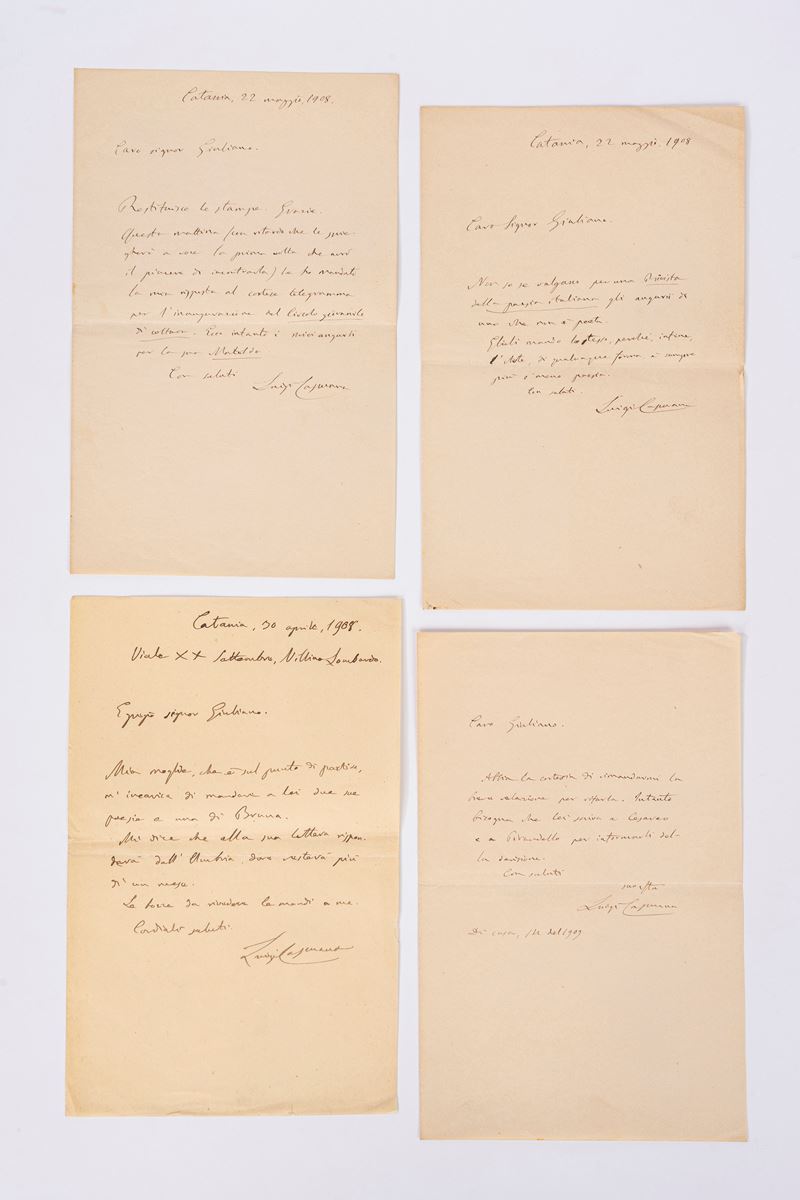 Catania, 22 maggio, 1908.
Caro signor Giuliano.
Restituisco le stampe. Grazie.
Questa mattina (con ritardo che le spie-
gherò a voce la prima volta che avrò
il piacere di incontrarla) le ho mandato
la mia risposta al cortese telegramma
per l'inaugurazione del Circolo giovanile
di coltura. Ecco intanto i miei augurii
per la sua Matelda.
Con saluti
Luigi Capuana
Catania, 22 maggio, 1908
Caro Signor Giuliano.
Non so se valgano per una Rivista
della poesia italiana gli augurii di
uno che non è poeta.
Glieli mando lo stesso, perché, infine,
l'Arte, di qualunque forma, è sempre
più o meno poesia.
Con saluti.
Luigi Capuana
Catania, 30 aprile, 1908.
Viale XX Settembre, Villino Lombardo.
Egregio signor Giuliano.
Mia moglie, che è sul punto di partire,
m'incarica di mandare a Lei due sue
poesie e una di Bruna.
Mi dice che alla sua lettera rispon-
derà dall'Umbria, dove resterà più
di un mese.
Le bozze da rivedere le mandi a me.
Cordiali saluti.
Luigi Capuana
Caro Giuliano.
Abbia la cortesia di rimandarmi la
breve relazione per rifarla. Intanto
bisogna che Lei scriva a Cesareo
e a Pirandello per informarli del-
la decisione.
Con saluti
Luigi Capuana
Di casa, del 1909